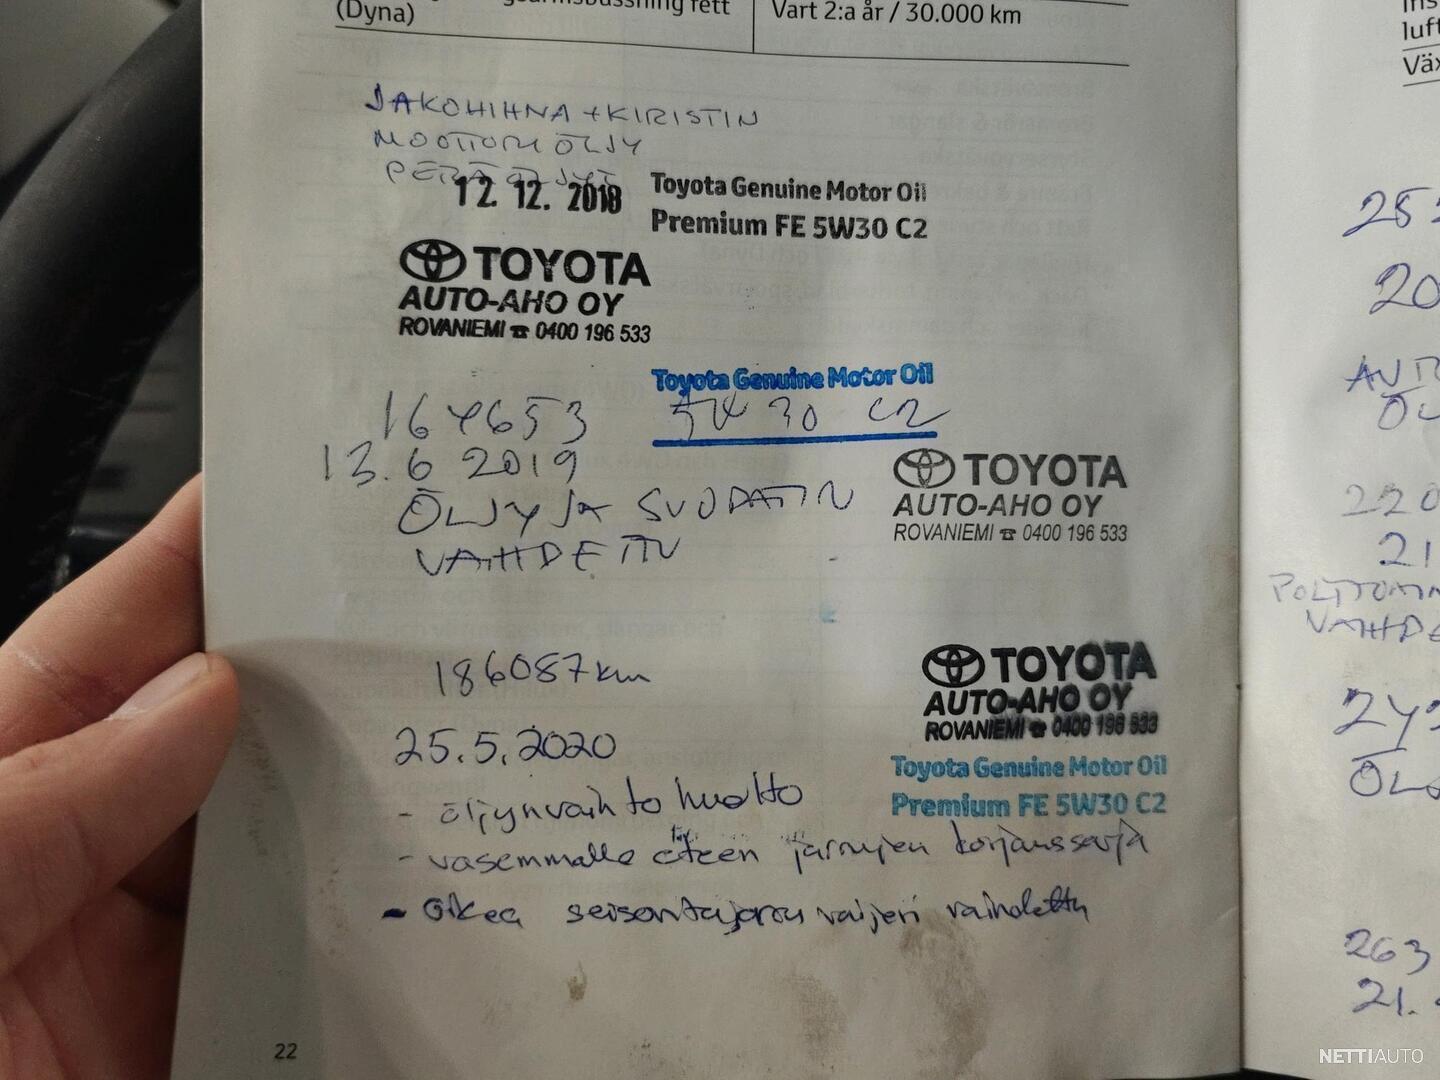 (Dyna)
fett
Vart 2:a år / 30.000 km
JAKOHIHNA + KIRISTIN
MOOTTORI ÖLJY
PERÄ ÖLJYT
12. 12. 2018
Toyota Genuine Motor Oil
Premium FE 5W30 C2
TOYOTA
AUTO-AHO OY
ROVANIEMI ☎ 0400 196 533
Toyota Genuine Motor Oil
164653 5W 30 C2
13.6 2019
ÖLJY JA SUODATIN
VAHDETTU
TOYOTA
AUTO-AHO OY
ROVANIEMI ☎ 0400 196 533
186087 km
25.5.2020
- öljynvaihto huolto
- vasemmalle eteen jarrujen korjaussarja
- oikea seisontajarru vaijeri vaihdettu
TOYOTA
AUTO-AHO OY
ROVANIEMI ☎ 0400 196 533
Toyota Genuine Motor Oil
Premium FE 5W30 C2
22
luft
Väx
20
220
21
263
21.
NETTIAUTO